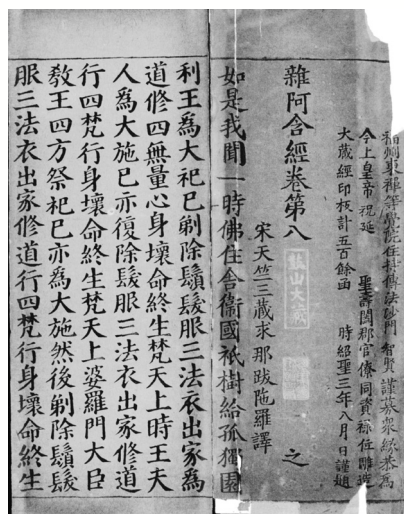 福州東禪等覺院住持傳法沙門 智賢 謹募衆緣恭爲
今上皇帝祝延 聖壽闔郡官僚同資祿位雕造
大藏經印板計五百餘函 時紹聖三年八月日謹題
雜阿含經卷第八 之
宋天竺三藏求那跋陁羅譯
如是我聞一時佛住舍衞國祇樹給孤獨園
利王爲大祀已剃除鬚髮服三法衣出家爲
道修四無量心身壞命終生梵天上時王夫
人爲大施已亦復除髮服三法衣出家修道
行四梵行身壞命終生梵天上婆羅門大臣
教王四方祭祀已亦爲大施然後剃除鬚髮
服三法衣出家修道行四梵行身壞命終生